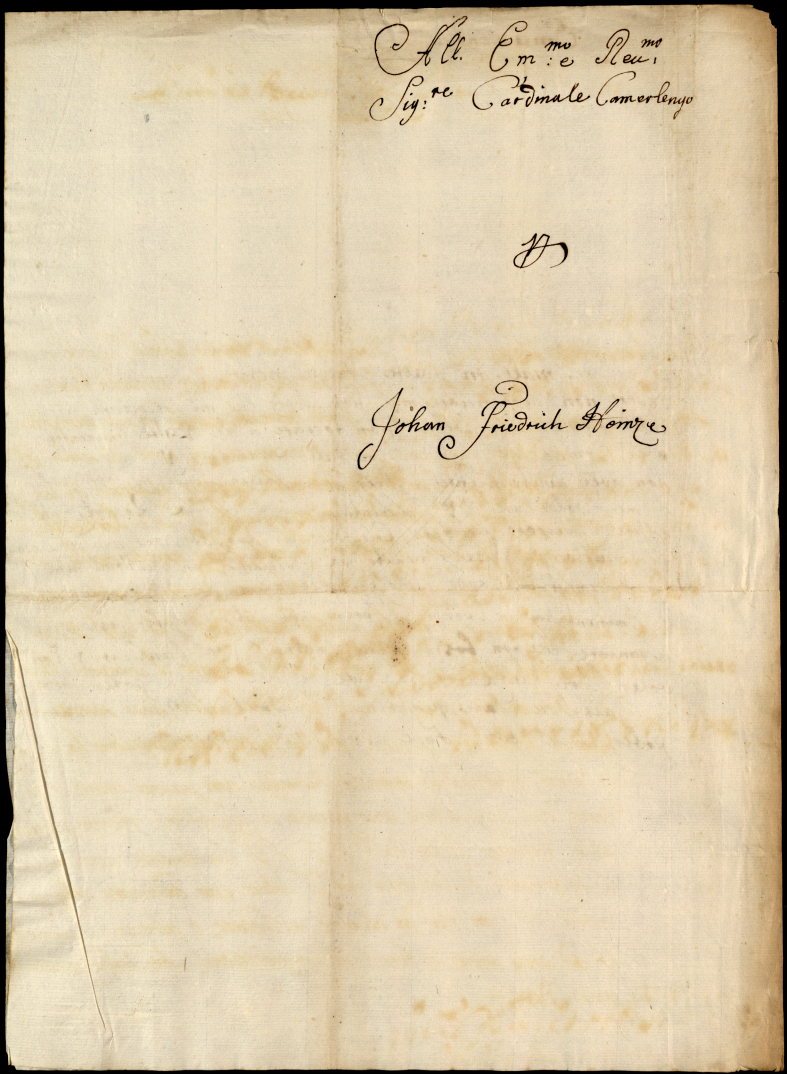 All. Em:mo e Reu:mo
Sig:re Cardinale Camerlengo
Johan Friedrich Heinze